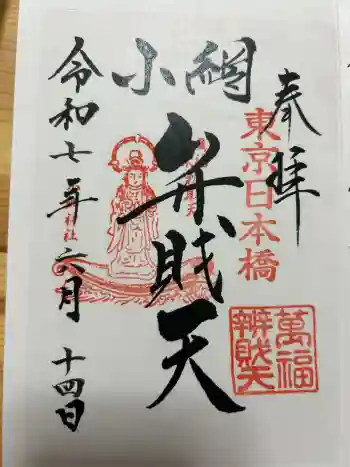 奉拝
東京日本橋
小網
弁財天
萬福
辨財天
令和七年六月十四日
神社